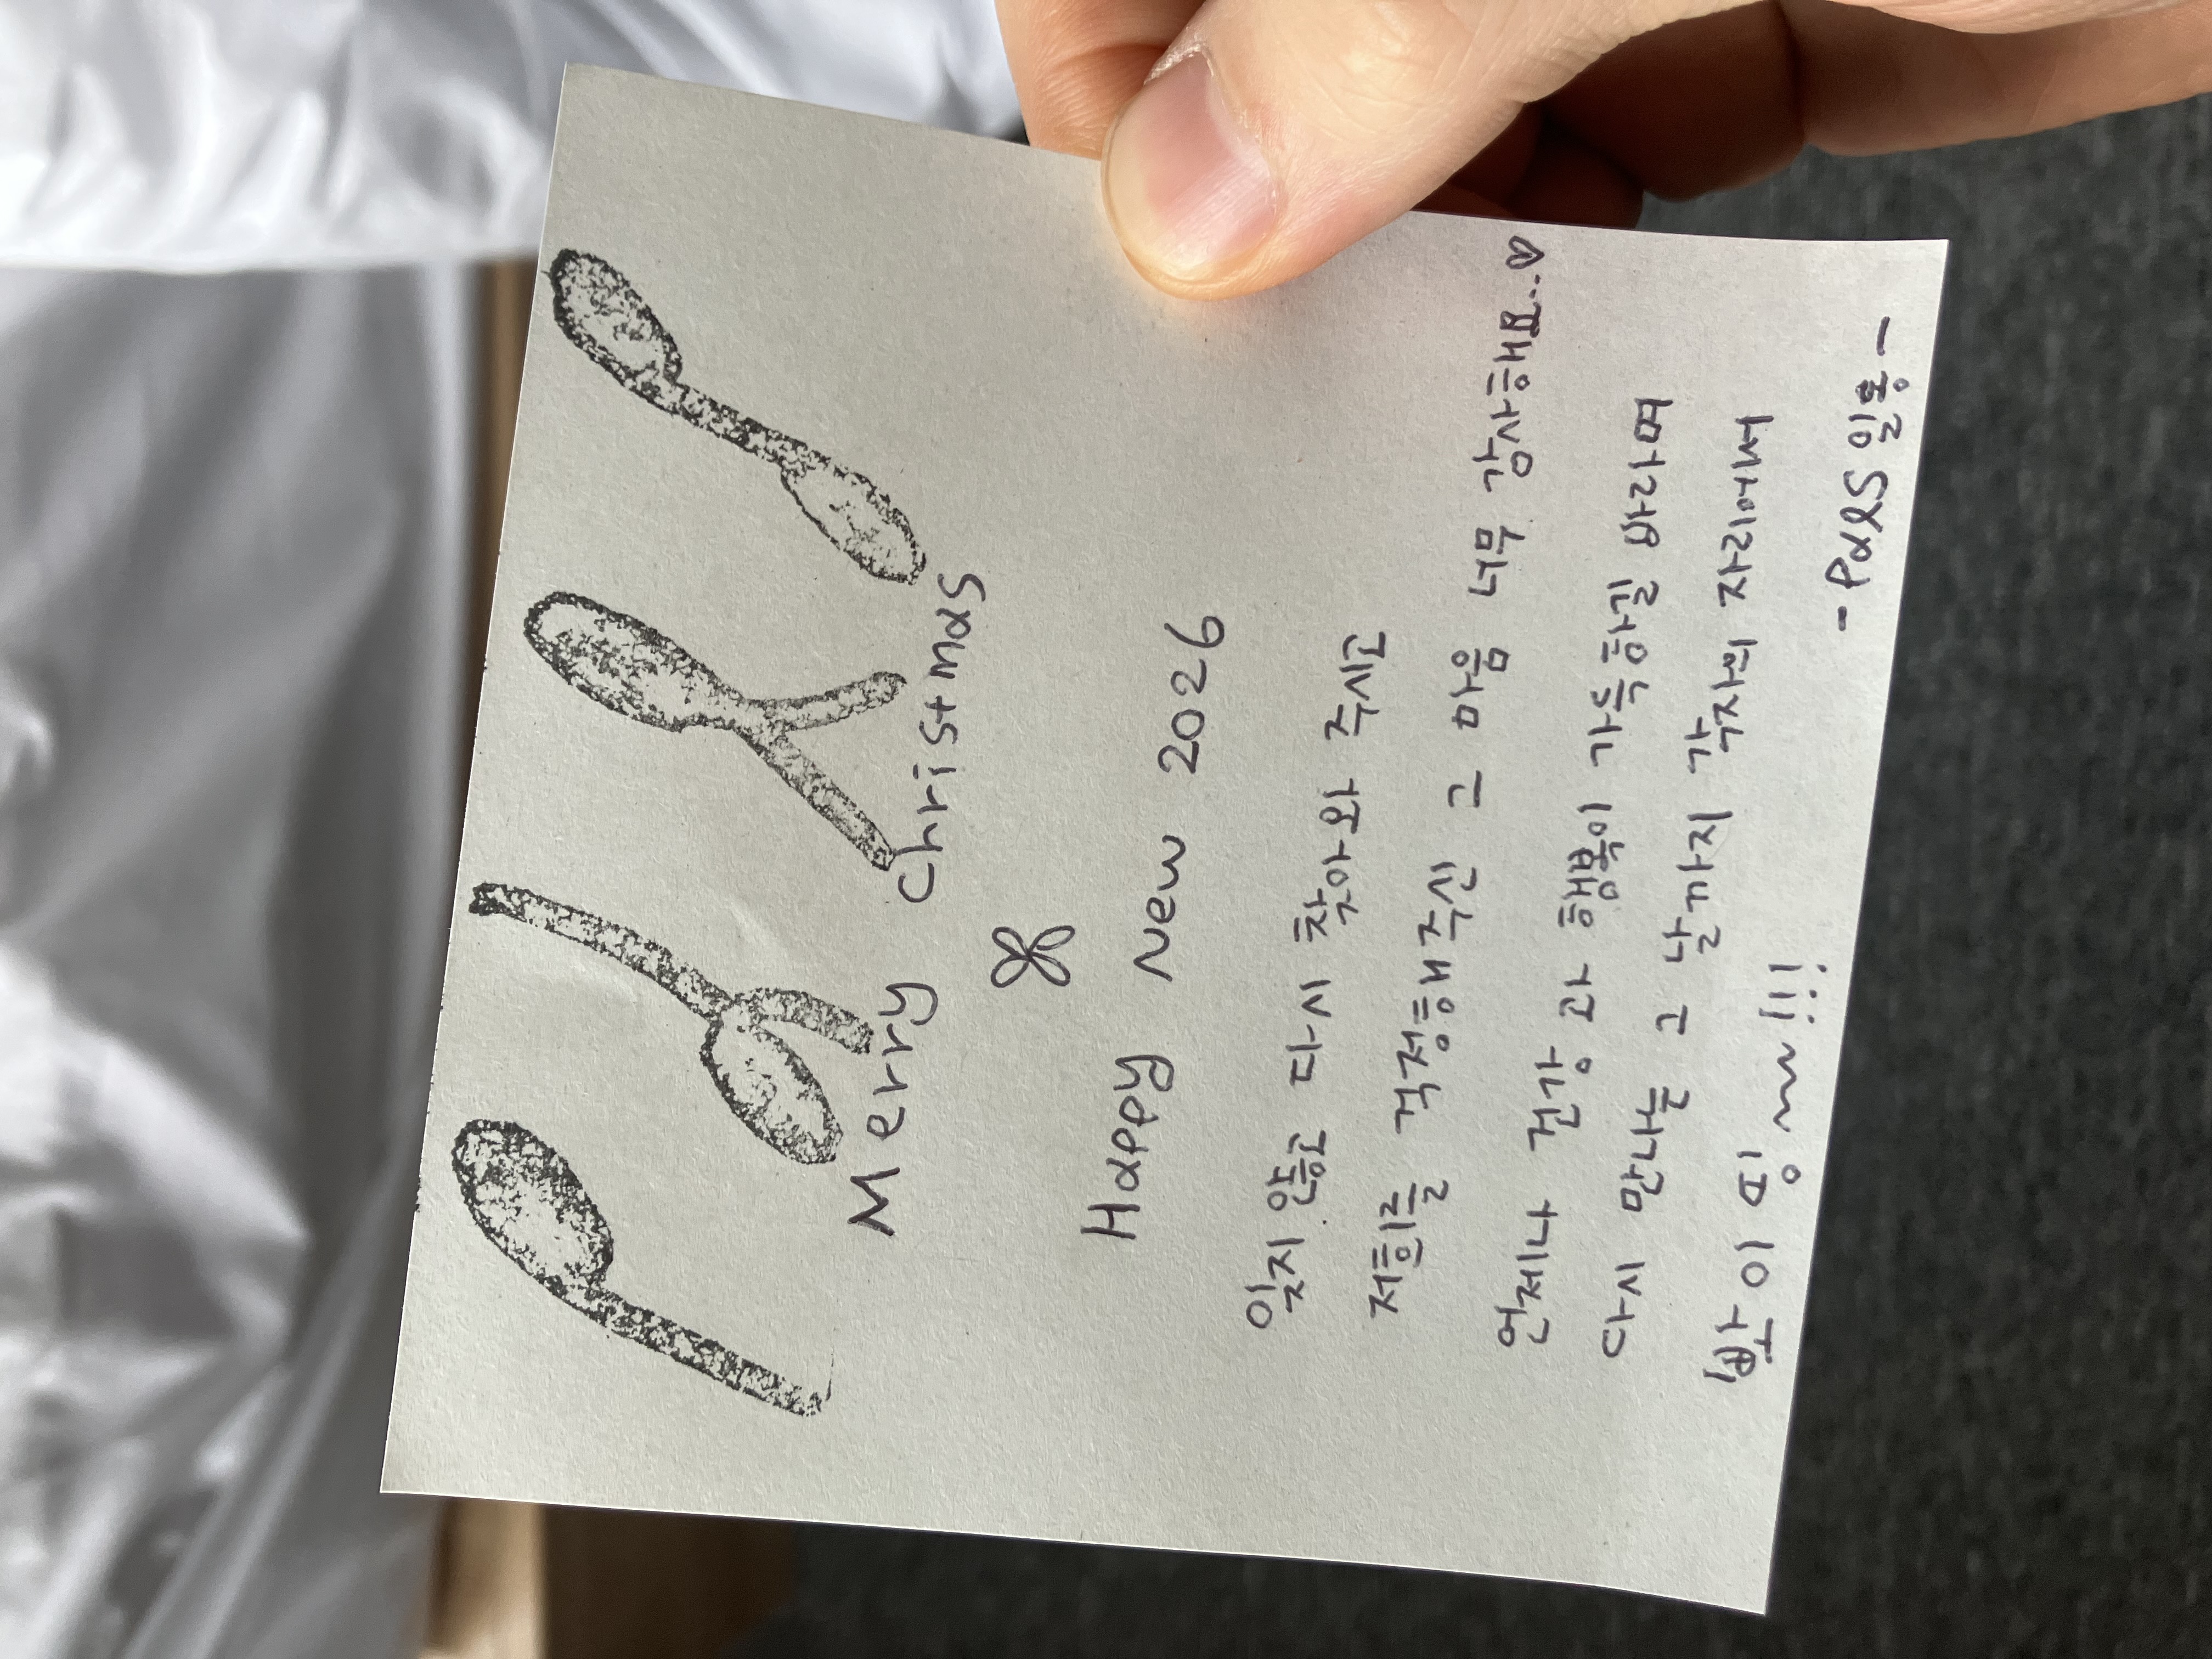 Merry Christmas
Happy New 2026
잊지 않고 다시 찾아와 주시고
저희를 걱정해주신 그 마음 너무 감사해요..♡
언제나 건강과 행복이 가득하길 바라며
다시 만나는 그 날까지 각자의 자리에서
빠이띵~~!!!
-PALS 일동-